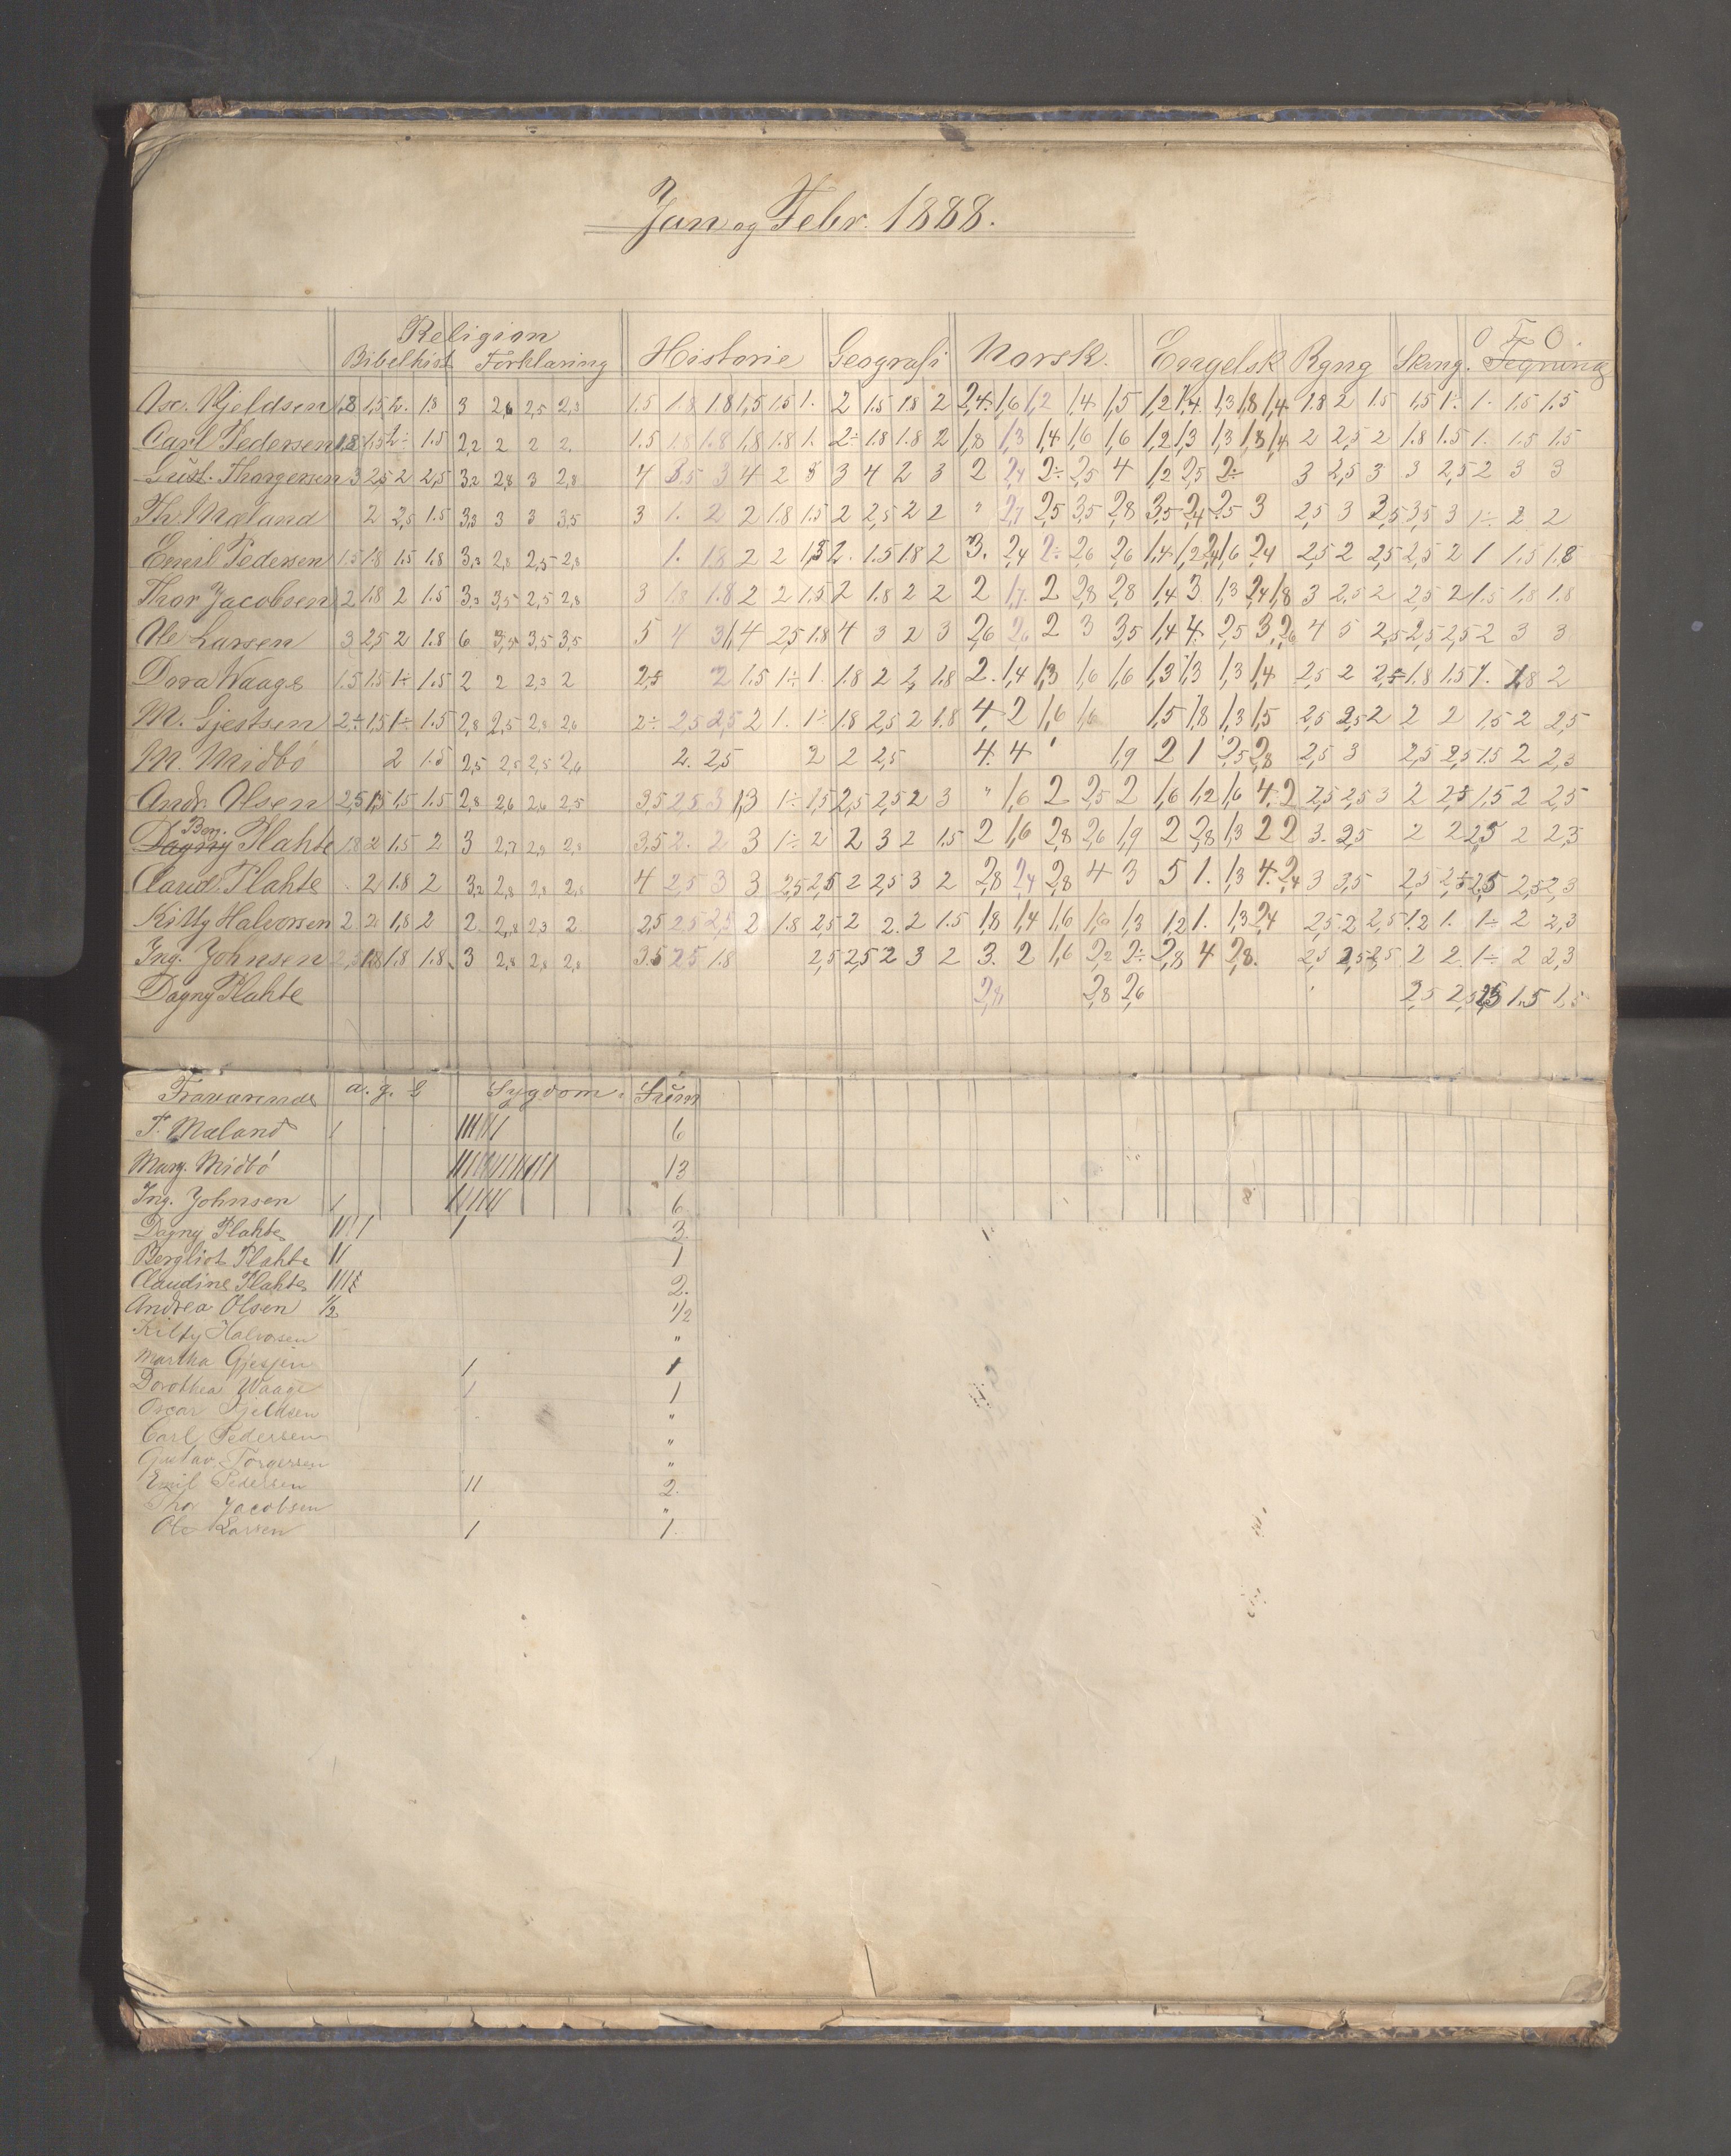 Jan og Febr. 1888.
Religion Historie Geografi Norsk. Engelsk Rgng Skrng. O F O.
Bibelhist. Forklaring Tegning
Osc. Kjeldsen 1.8 1.5 2. 1.8 3 2,6 2,5 2,3 1.5 1.8 1.8 1,5 1.5 1. 2 1.5 1.8 2 2,4. 1,6 1,2 1,4 1,5 1,2 1,4 1,3 1,8 1,4 1.8 2 1.5 1,5 1. 1. 1.5 1.5
Carl Pedersen 1.8 1.5 2÷ 1.5 2,2 2 2 2. 1.5 1.8 1.8 1,8 1.8 1. 2÷ 1.8 1.8 2 1,8 1,3 1,4 1,6 1,6 1,2 1,3 1,3 1,8 1,4 2 2,5 2 1.8 1.5 1. 1.5 1.5
Gust. Thorgersen 3 2,5 2 2,5 3,2 2,8 3 2,8 4 3.5 3 4 2 3 3 4 2 3 2 2,4 2÷ 2,5 4 1,2 2,5 2÷ 3 2,5 3 3 2,5 2 3 3
Th. Mæland 2 2,5 1.5 3,3 3 3 3,5 3 1. 2 2 1.8 1.5 2 2,5 2 2 " 2,7 2,5 3,5 2,8 3,5 2,4 2,5 3 2,5 3 2,5 3,5 3 1÷ 2 2
Emil Pedersen 1.5 1.8 1.5 1.8 3,3 2,8 2,5 2,8 1. 1.8 2 2 1,5 2. 1.5 1.8 2 3. 2,4 2÷ 2,6 2,6 1,4 1,2 2,4 1,6 2,4 2,5 2 2,5 2,5 2 1 1.5 1.8
Thor Jacobsen 2 1.8 2 1.5 3,3 3,5 2,5 2,8 3 1.8 1.8 2 2 1.5 2 1.8 2 2 2 1,7 2 2,8 2,8 1,4 3 1,3 2,4 1,8 3 2.5 2 2,5 2 1.5 1,8 1.8
Ole Larsen 3 2,5 2 1.8 6 3,5 3,5 3,5 5 4 3 1,4 2,5 1.8 4 3 2 3 2,6 2,6 2 3 3,5 1,4 4. 2,5 3 2,6 4 5 2,5 2,5 2,5 2 3 3
Dora Waage 1.5 1.5 1÷ 1.5 2 2 2,3 2 2,5 2 1.5 1÷ 1. 1.8 2 2 1.8 2. 1,4 1,3 1,6 1,6 1,3 1,3 1,3 1,4 2,5 2 2,5 1.8 1.5 1. 1,8 2
M. Gjestsen 2÷ 1.5 1÷ 1.5 2,8 2,5 2,8 2,6 2÷ 2,5 2,5 2 1. 1÷ 1.8 2,5 2 1.8 4. 2 1,6 1,6 1,5 1,8 1,3 1,5 2,5 2,5 2 2 2 1.5 2 2,5
M. Midbö 2 1.5 2,5 2,5 2,5 2,6 2. 2,5 2 2 2,5 4. 4 1,9 2 1 2,5 2,8 2,5 3 2,5 2,5 1.5 2 2,3
Andr. Olsen 2,5 1,5 1.5 1.5 2,8 2,6 2,6 2,5 3,5 2,5 3 1,3 1÷ 1,5 2,5 2,5 2 3 " 1,6 2 2,5 2 1,6 1,2 1,6 4. 2 2,5 2,5 3 2 2,5 1,5 2 2,5
Ber.
Dagny Plahte 1.8 2 1.5 2 3 2,7 2,8 2,8 3,5 2. 2 3 1÷ 2 2 3 2 1.5 2 1,6 2,8 2,6 1,9 2 2,8 1,3 2 2 3. 2,5 2 2 2,5 2 2,3
Claud. Plahte 2 1.8 2 3,2 2,8 2,8 2,8 4 2,5 3 3 2,5 2,5 2 2,5 3 2 2,8 2,4 2,8 4 3 5 1. 1,3 4. 2,4 3 3,5 2,5 2,5 2,5 2,5 2,3
Kitty Halvorsen 2 2 1,8 2 2 2,8 2,3 2 2,5 2,5 2,5 2 1.8 2,5 2 2. 2 1.5 1,8 1,4 1,6 1,6 1,3 1,2 1. 1,3 2,4 2,5 2 2,5 1.2 1. 1÷ 2 2,3
Ing. Johnsen 2,5 1.8 1.8 1.8 3 2,8 2,8 2,8 3.5 2.5 1.8 2,5 2,5 2 3 2 3. 2 1,6 2,2 2÷ 2,8 4 2,8. 2,5 2,5 2,5 2 2. 1÷ 2 2,3
Dagny Plahte 2,8 2,8 2,6 2,5 2,5 2,5 1.5 1,5
Fraværende a. g. Sygdom. Sum
T. Mæland 1 6
Marg. Midbö 13
Ing. Johnsen 1 6
Dagny Plahte 1 3.
Bergliot Plahte 11 1
Claudine Plahte 2.
Andrea Olsen 1/2 1/2
Kitty Halvorsen "
Martha Gjesjen 1 1
Dorothea Waage 1 1
Oscar Kjeldsen "
Carl Pedersen "
Gustav Torgersen "
Emil Pedersen 11 2.
Thor Jacobsen "
Ole Larsen 1 1.